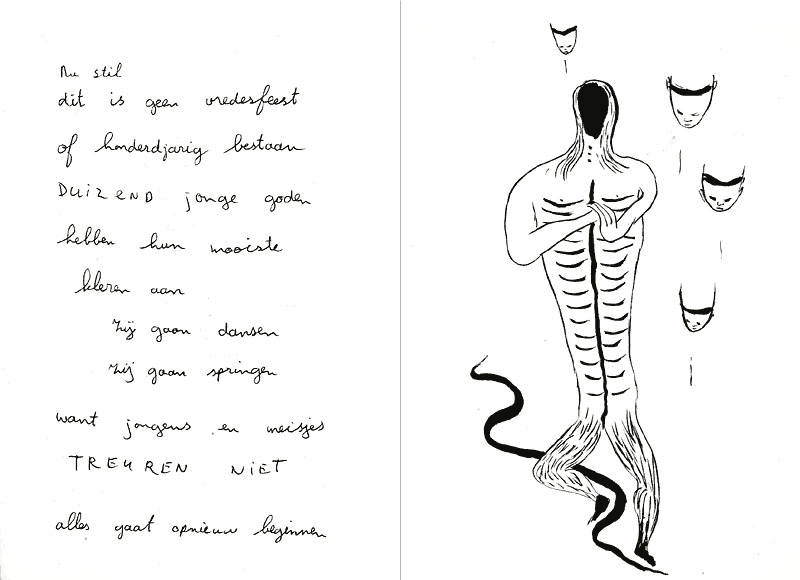 Nu stil
dit is geen vredesfeest
of honderdjarig bestaan
DUIZEND jonge goden
hebben hun mooiste
kleren aan
zij gaan dansen
zij gaan springen
want jongens en meisjes
TREUREN NIET
alles gaat opnieuw beginnen